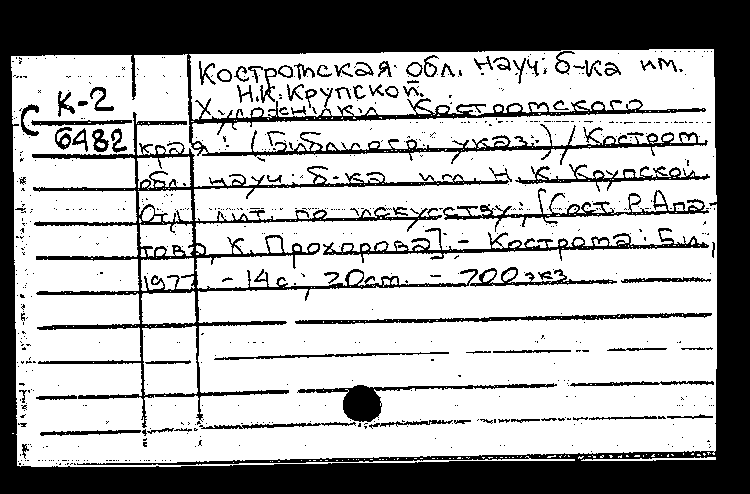 Костромская обл. науч. б-ка им.
Н.К. Крупской.
С К-2
6482
Художники Костромского
края : (Библиогр. указ.) / Костром.
обл. науч. б-ка им. Н. К. Крупской.
Отд. лит. по искусству ; [Сост. Р. Апа-
това, К. Прохорова]. - Кострома : Б.и.,
1977. - 14 с. ; 20 см. - 700 экз.